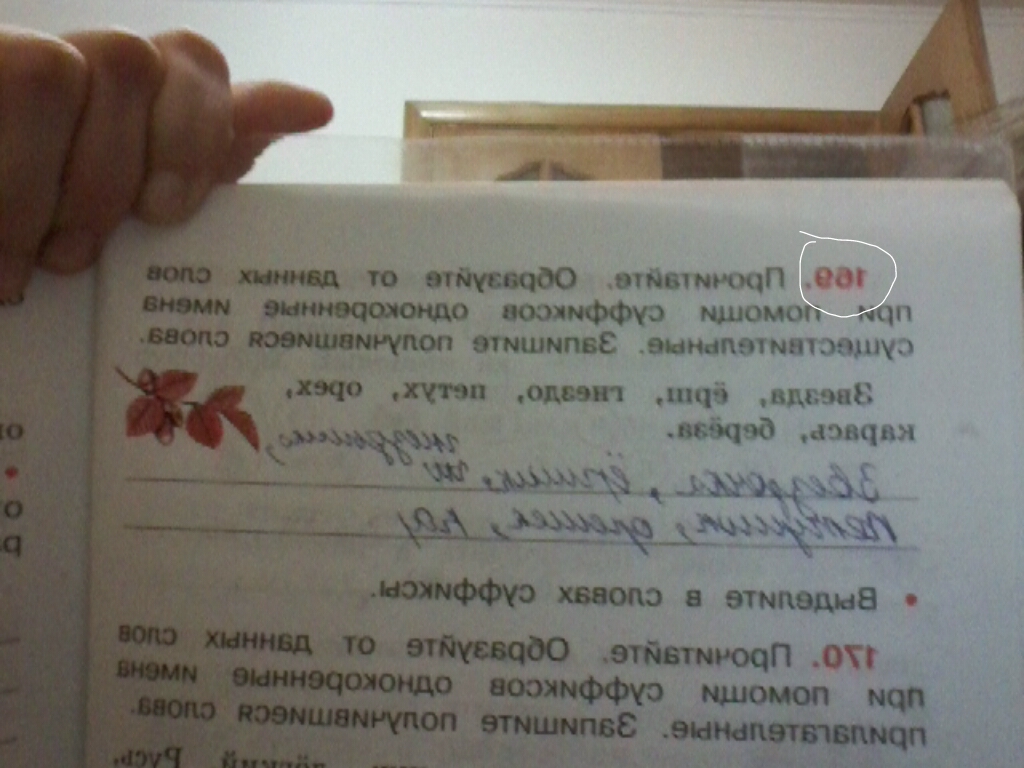 169. Прочитайте. Образуйте от данных слов
при помощи суффиксов однокоренные имена
существительные. Запишите получившиеся слова.
Звезда, ёрш, гнездо, петух, орех,
карась, берёза.
гнёздышко,
Звездочка, ёршик,
Петушок, орешек, ка
• Выделите в словах суффиксы.
170. Прочитайте. Образуйте от данных слов
при помощи суффиксов однокоренные имена
прилагательные. Запишите получившиеся слова.
Русь,